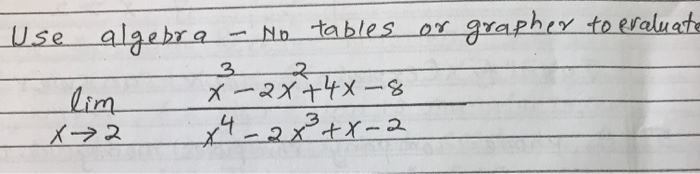 Use algebra - No tables or grapher to evaluate
lim x→2 (x³-2x²+4x-8)/(x⁴-2x³+x-2)